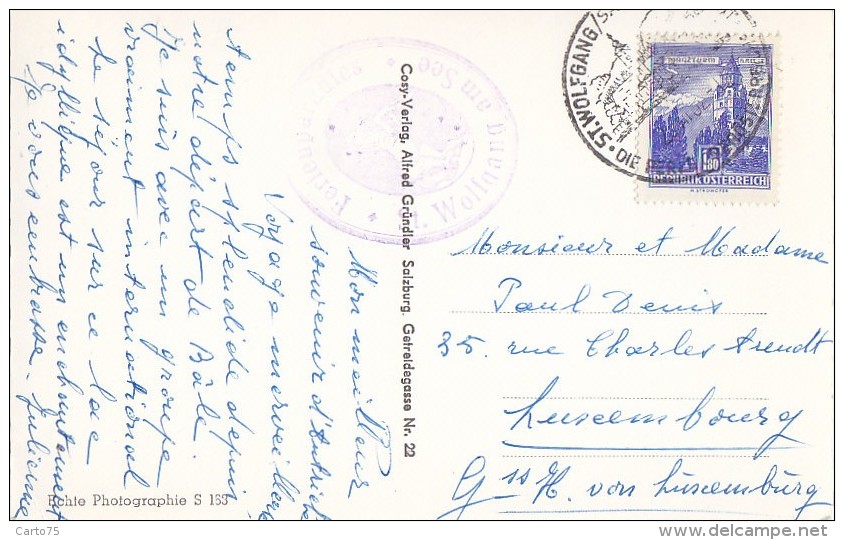 Mon meilleur
souvenir d'Autriche
Voyage merveilleux
Temps splendide depuis
notre départ de Bâle.
Je suis avec un groupe
vraiment international
Le séjour sur ce lac
idyllique est un enchantement
Je vous embrasse. Julienne
Echte Photographie S 163
Cosy-Verlag, Alfred Gründler Salzburg, Getreidegasse Nr. 22
St. Wolfgang am See
ST. WOLFGANG/
DIE
1.80
REPUBLIK ÖSTERREICH
Monsieur et Madame
Paul Denis
35. rue Charles Arendt
Luxembourg
Gss H. von Luxemburg
Carto75
www.delcampe.net